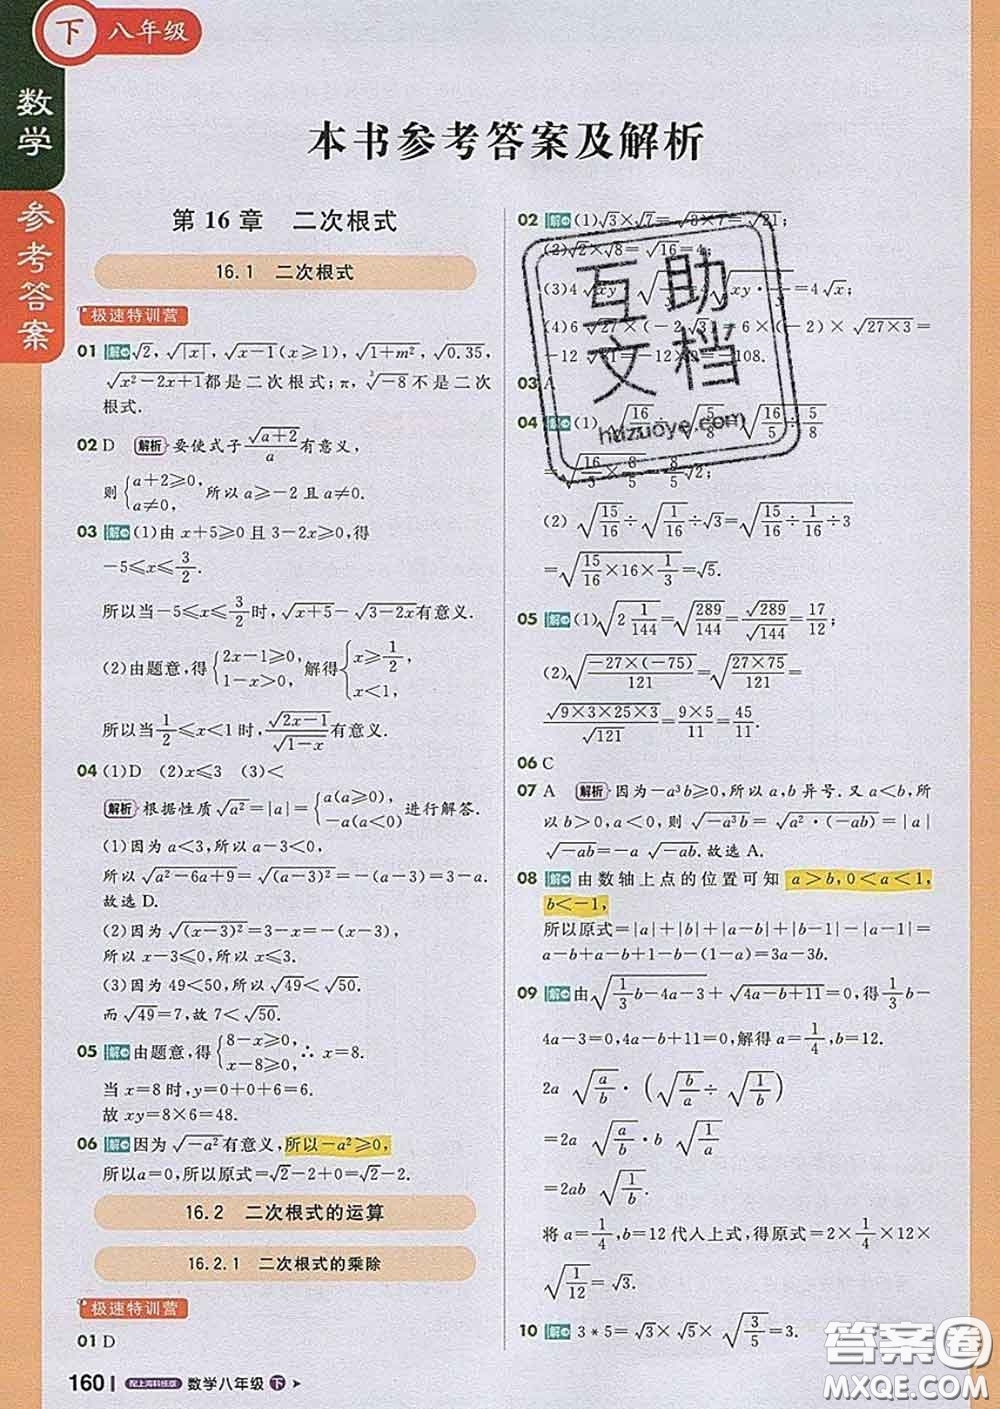 下 八年级
数学
参考答案
本书参考答案及解析
第 16 章 二次根式
16.1 二次根式
极速特训营
01 解 √2, √|x|, √(x-1)(x≥1), √(1+m²), √0.35,
√(x²-2x+1)都是二次根式;π, ³√-8不是二次
根式.
02 D 解析 要使式子√(a+2)/a有意义,
则{a+2≥0, a≠0, 所以a≥-2且a≠0.
03 解 (1)由x+5≥0且3-2x≥0,得
-5≤x≤3/2.
所以当-5≤x≤3/2时,√(x+5)-√(3-2x)有意义.
(2)由题意,得{2x-1≥0, 1-x>0, 解得{x≥1/2, x<1,
所以当1/2≤x<1时,√(2x-1)/√(1-x)有意义.
04 (1)D (2)x≤3 (3)<
解析 根据性质√a²=|a|={a(a≥0), -a(a<0) 进行解答.
(1)因为a<3,所以a-3<0.
所以√(a²-6a+9)=√(a-3)²=-(a-3)=3-a.
故选D.
(2)因为√(x-3)²=3-x=-(x-3),
所以x-3≤0,所以x≤3.
(3)因为49<50,所以√49<√50.
而√49=7,故7<√50.
05 解 由题意,得{8-x≥0, x-8≥0, ∴x=8.
当x=8时,y=0+0+6=6.
故xy=8×6=48.
06 解 因为√-a²有意义,所以-a²≥0,
所以a=0,所以原式=√2-2+0=√2-2.
16.2 二次根式的运算
16.2.1 二次根式的乘除
极速特训营
01 D
02 解 (1)√3×√7=√3×7=√21;
(2)√2×√8=√16=4;
(3)4√xy=4√x;
(4)6√27×(-2√3)=6×(-2)×√(27×3)=
-108.
03 A
04 解 (1)
(2)√(15/16)÷√(1/16)÷√3=√(15/16÷1/16÷3)
=√(15/16×16×1/3)=√5.
05 解 (1)√(2 1/144)=√(289/144)=√289/√144=17/12;
(2)√(-27×(-75)/121)=√(27×75/121)=
√(9×3×25×3)/√121=9×5/11=45/11.
06 C
07 A 解析 因为-a³b≥0,所以a,b异号.又a<b,所
以b>0,a<0,则√-a³b=√(a²·(-ab))=|a|
√-ab=-a√-ab.故选A.
08 解 由数轴上点的位置可知a>b,0<a<1,
b<-1,
所以原式=|a|+|b|+|a-b|+|b-1|-|a-1|=
a-b+a-b+1-b-(1-a)=3a-3b.
09 解 由√(1/3b-4a-3)+√(4a-b+11)=0,得1/3b-
4a-3=0,4a-b+11=0,解得a=1/4,b=12.
2a√(a/b)·(√(b/a)÷√(1/b))
=2a√(a/b)·b√(1/a)
=2ab√(1/b).
将a=1/4,b=12代入上式,得原式=2×1/4×12×
√(1/12)=√3.
10 解 3*5=√3×√5×√(3/5)=3.
160 配上海科技版 数学八年级 下
互助
文档
huzuoye.com
答案圈
MXQE.COM